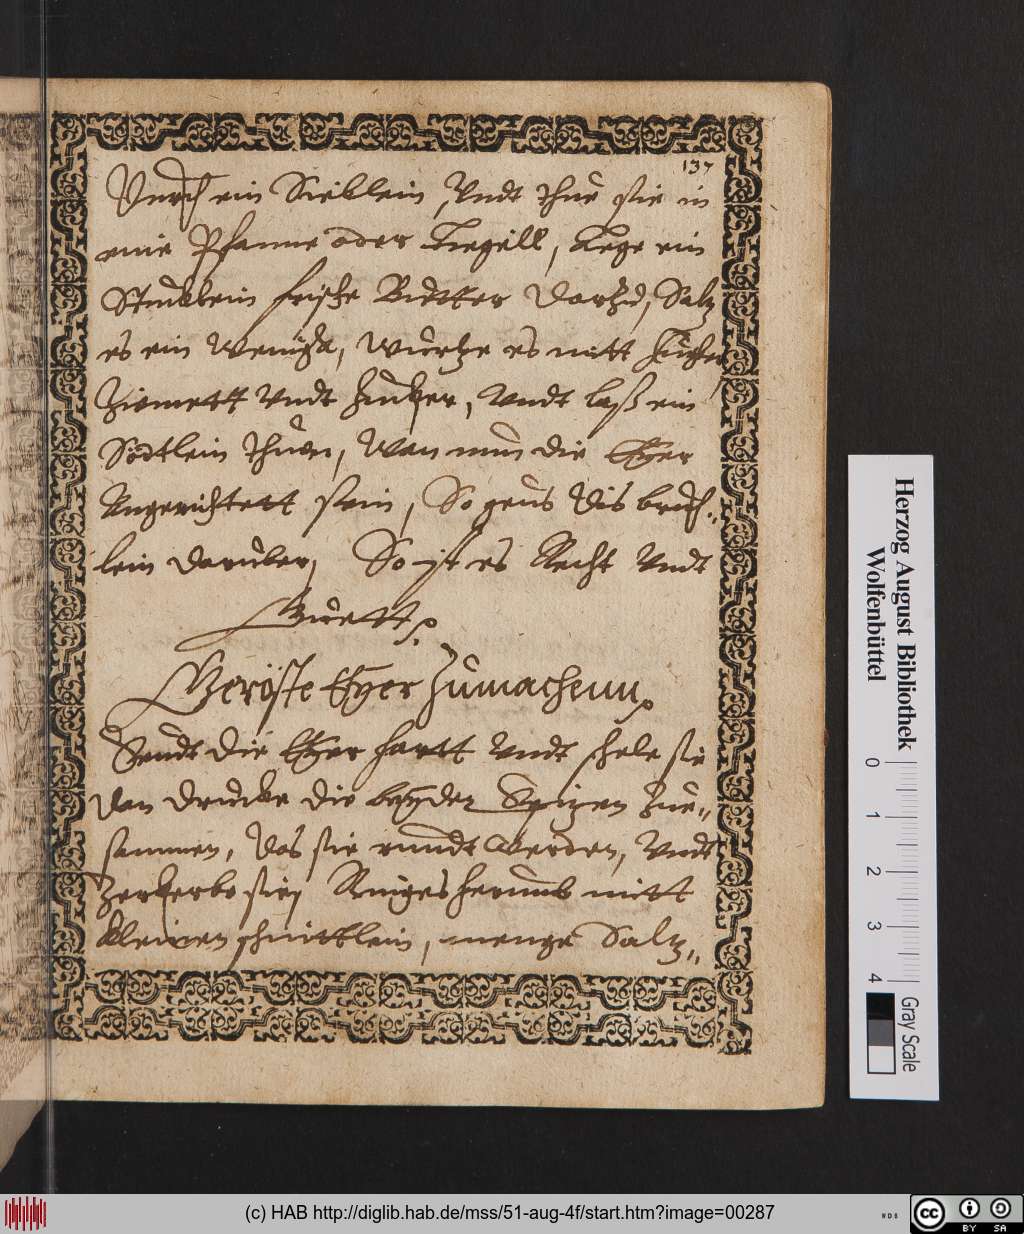 137
Durch ein Sieblein, Vndt thue sie in
eine Pfanne oder Tiegell, Lege ein
Stucklein frische Butter darzu, Saltz
es ein wenigk, wurtze es mitt
Zimmett Vndt Zucker, Vndt laß ein
Södtlein thuen, Wan nun die Eyer
Angerichtett sein, So geus dis brüh-
lein daruber, So ist es Recht Vndt
Guett.
Geröste Eyer Zumachenn.
Seudt die Eyer hartt Vndt schele sie
dan drucke die beyden Spitzen Zue„
sammen, das sie rundt werden, Vndt
Zerkerbe sie, Ringes herumb mitt
kleinen schnittlein, menge Saltz„
Herzog August Bibliothek
Wolfenbüttel
0 1 2 3 4
Gray Scale
(c) HAB http://diglib.hab.de/mss/51-aug-4f/start.htm?image=00287
WDB
cc BY SA